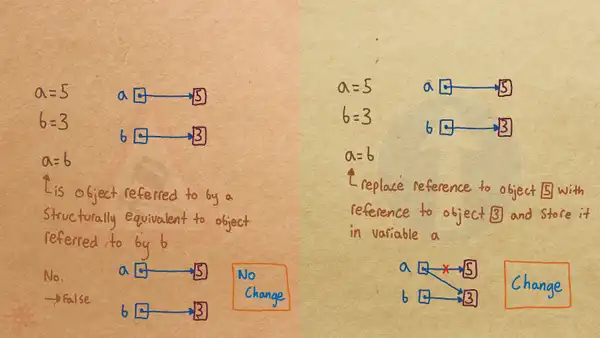 a=5
a
5
b=3
b
3
a=b
is object referred to by a
structurally equivalent to object
referred to by b
No.
→False
a
5
b
3
No
Change
a=5
a
5
b=3
b
3
a=b
replace reference to object 5 with
reference to object 3 and store it
in variable a
a
x
5
b
3
Change